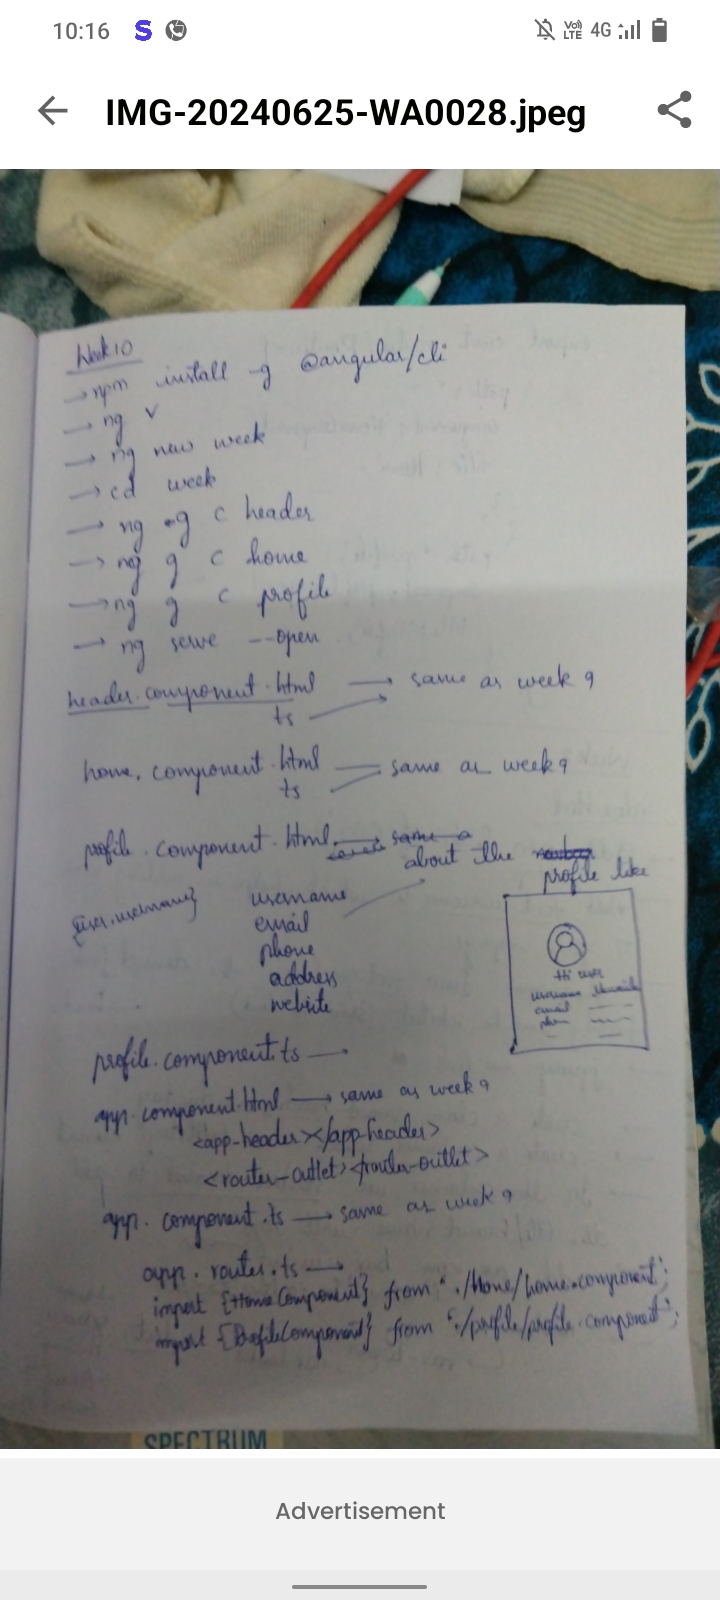 10:16
S
Vo))
LTE
4G
IMG-20240625-WA0028.jpeg
Week 10
→ npm install -g @angular/cli
→ ng v
→ ng new week
→ cd week
→ ng g c header
→ ng g c home
→ ng g c profile
→ ng serve --open
header.component.html → same as week 9
ts
home.component.html — same as week 9
ts
profile.component.html → same a
about the
profile like
{user.username}
username
email
phone
address
website
Hi user
username
email
phn
profile.component.ts →
app.component.html → same as week 9
<app-header></app-header>
<router-outlet></router-outlet>
app.component.ts → same as week 9
app.router.ts →
import {HomeComponent} from './home/home.component';
import {ProfileComponent} from './profile/profile.component';
SPECTRUM
Advertisement